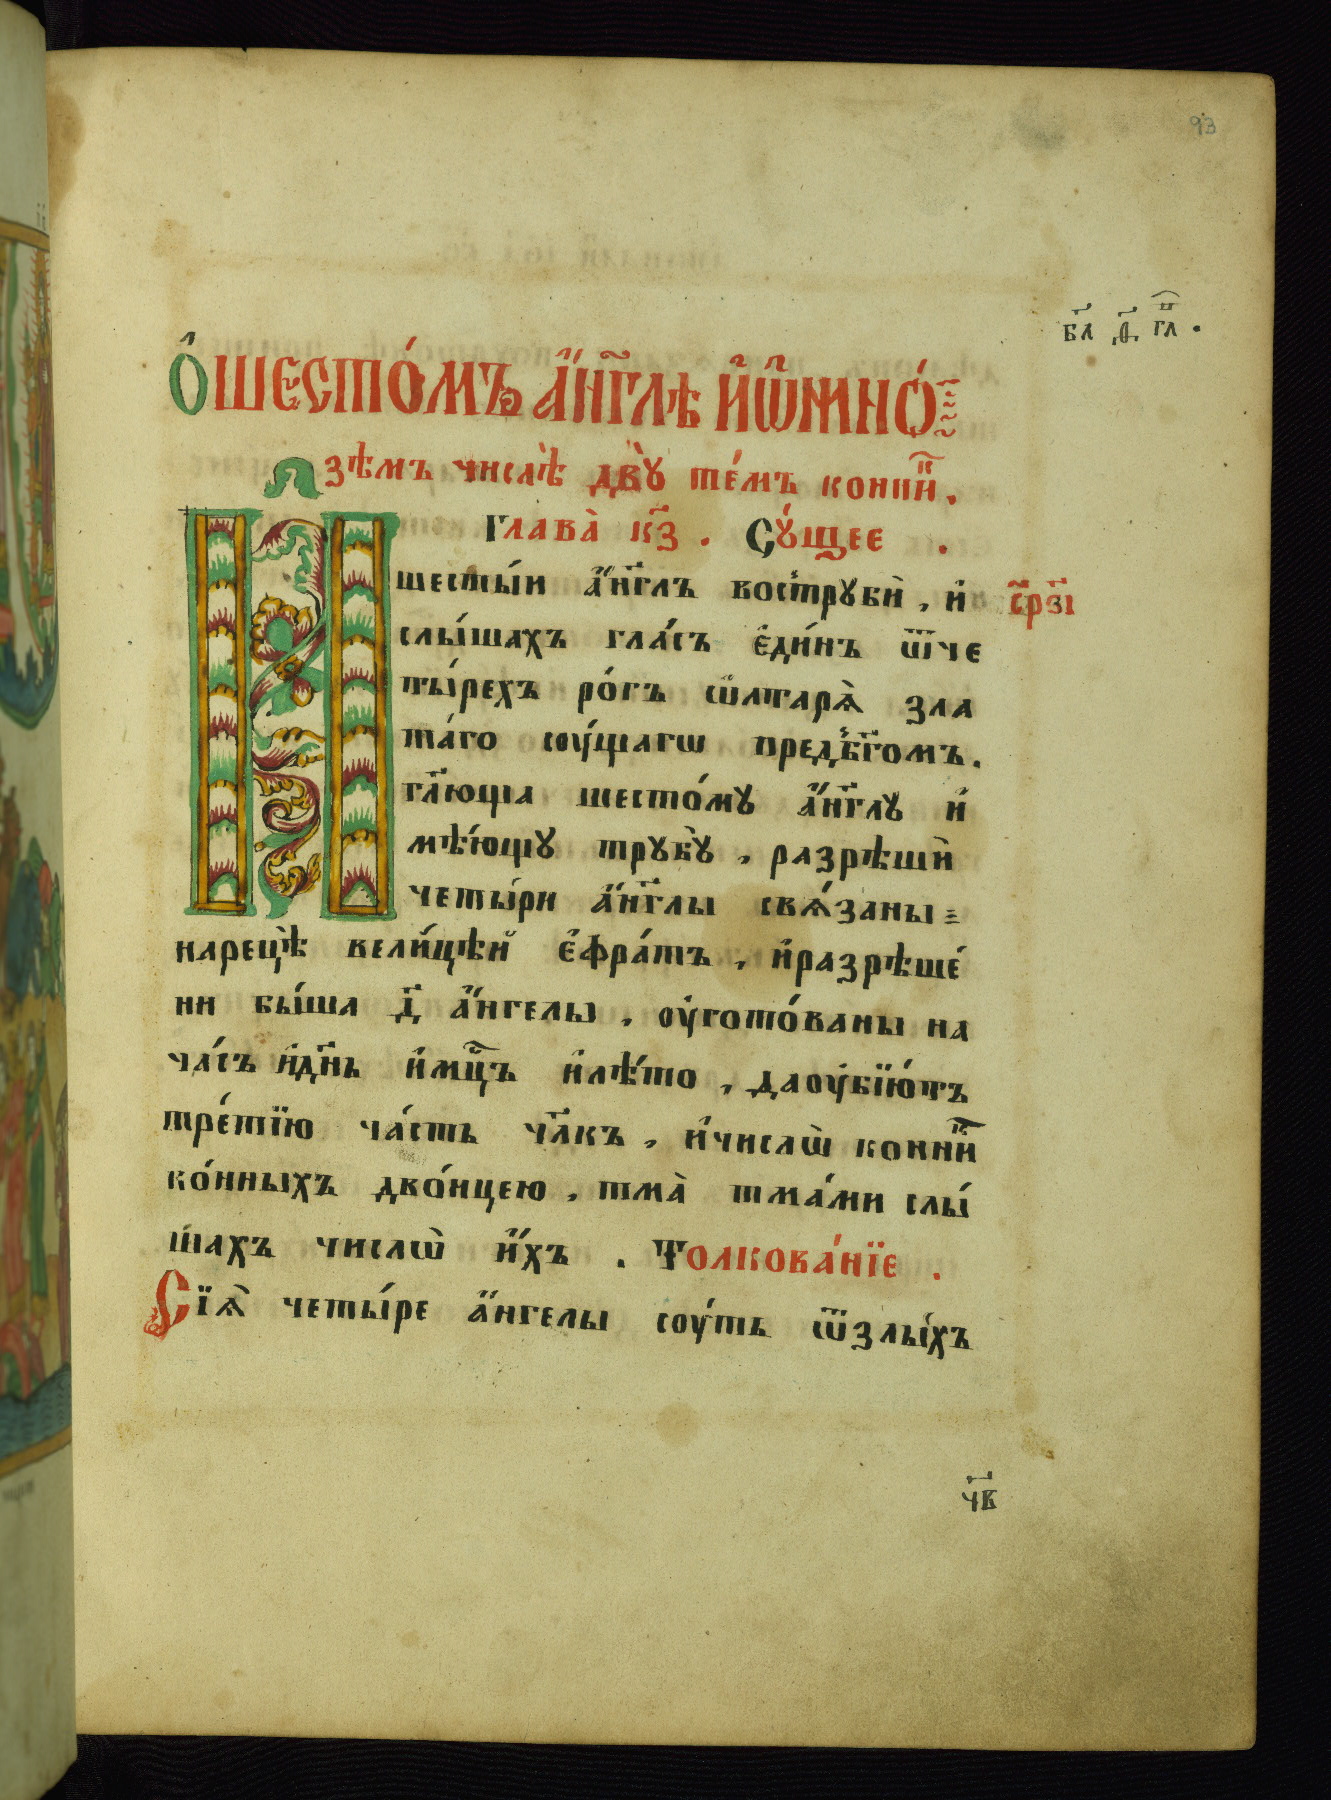 93
Ѻ҆ШЕСТО́МЪ А҆́Н҃ГЛѢ И҆Ѿ МНО́
зѣмъ числѣ̀ двꙋ̀ те́мъ конни҃
Глава̀ к҃з . Сꙋ́щее .
И шесты́и а҆́н҃глъ вострꙋби̇̀ , и҆
с҃рз҃і
слы́шахъ гла́съ е҆ди́нъ ѿче
ты́рехъ ро́гъ ѡ҆лтарѧ̀ зла
та́го соу́щагѡ предъ́б҃гомъ .
г҃лющіа шесто́мꙋ а҆́н҃глꙋ и҆
мѣ́ющꙋ трꙋбꙋ̀ , разрѣшѝ
четы́ри а҆́н҃глы свѧ́заны
нарецѣ̀ вели́цѣй е҆фра́тъ , и҆разрѣше́
ни бы́ша д҃ а҆́нгелы , оу҆гото́ваны на
ча́съ и҆д҃нь и҆мц҃ъ и҆лѣ́то , даоу҆бїю́тъ
тре́тїю ча́сть ч҃лкъ , и҆числѡ̀ конни҃
ко́нныхъ дво́ицею , тма̀ тма́ми слы́
шахъ числѡ̀ и҆́хъ . Толкова́нїе .
Сїѧ̀ четы́ре а҆́нгелы соу́ть ѿзлы́хъ
ч҃в